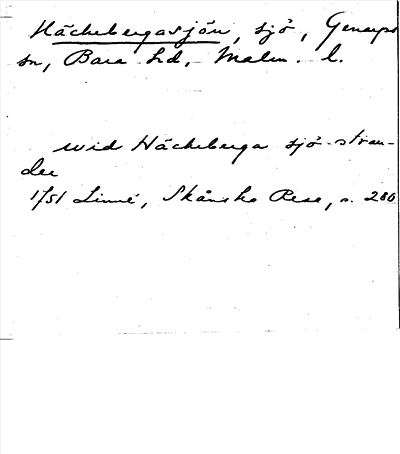 Häckebergasjön, sjö, Genarps
sn, Bara hd, Malm. l.
wid Häckeberga sjö-stran-
den
1751 Linné, Skånska Resa, s. 280